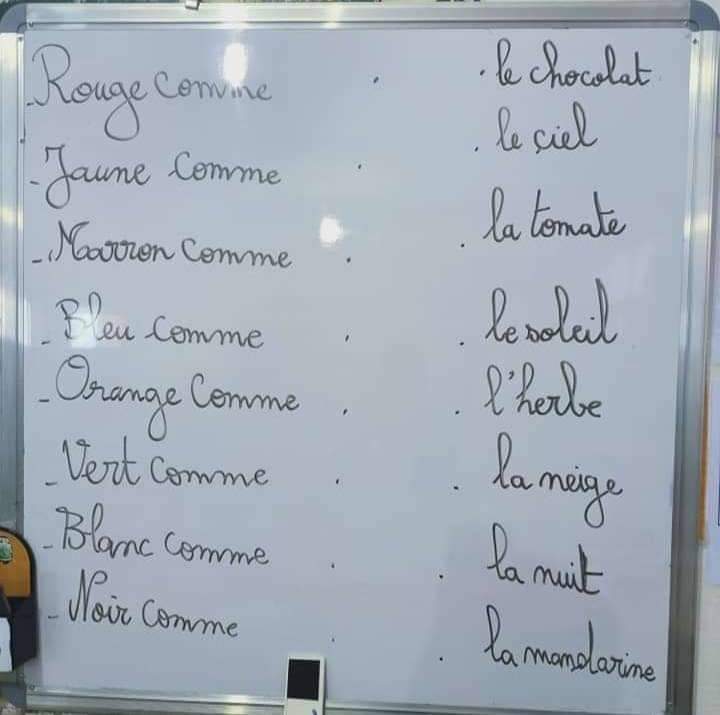 - Rouge comme . . le chocolat
- Jaune comme . . le ciel
- Marron comme . . la tomate
- Bleu comme . . le soleil
- Orange comme . . l'herbe
- Vert comme . . la neige
- Blanc comme . . la nuit
- Noir comme . . la mandarine